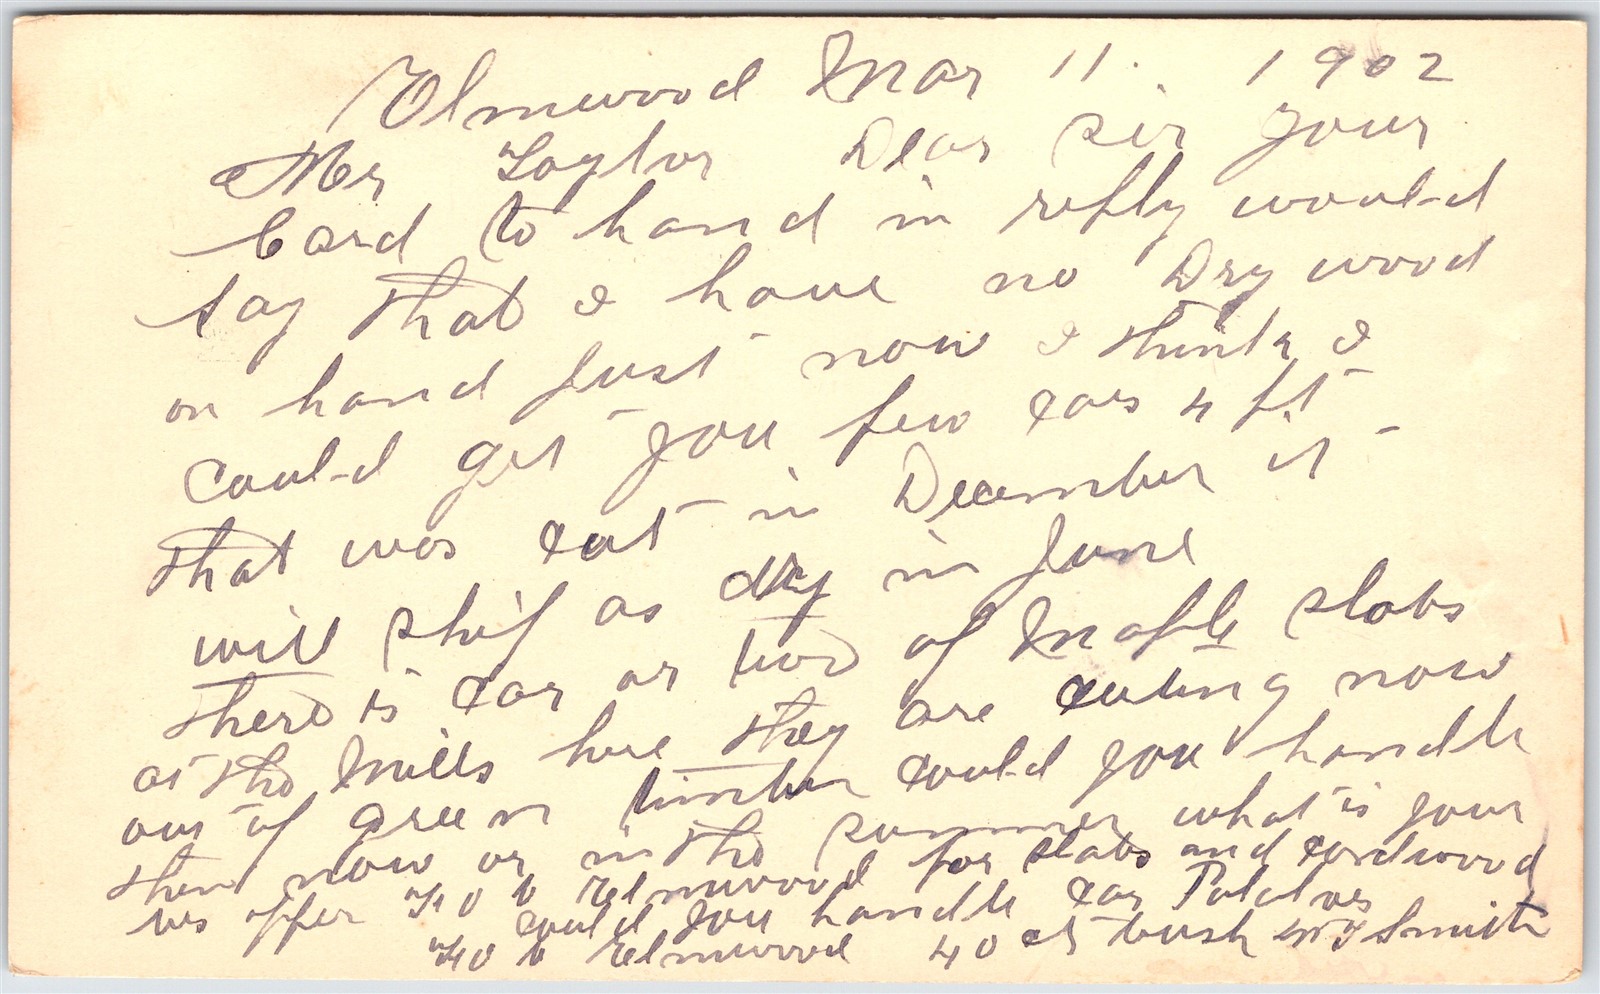 Elmwood Mar 11. 1902
Mr Taylor Dear sir your
Card to hand in reply would
say that I have no Dry wood
on hand just now I think I
could get you few cars 4 ft
that was cut in December it
will ship as dry in June
there is car or two of Maple slabs
at the mills here they are cuting now
out of green timber could you handle
them now or in the summer what is your
offer F O B Elmwood for slabs and cordwood
could you handle car Potatoes
F O B Elmwood 40 cts bush Smith